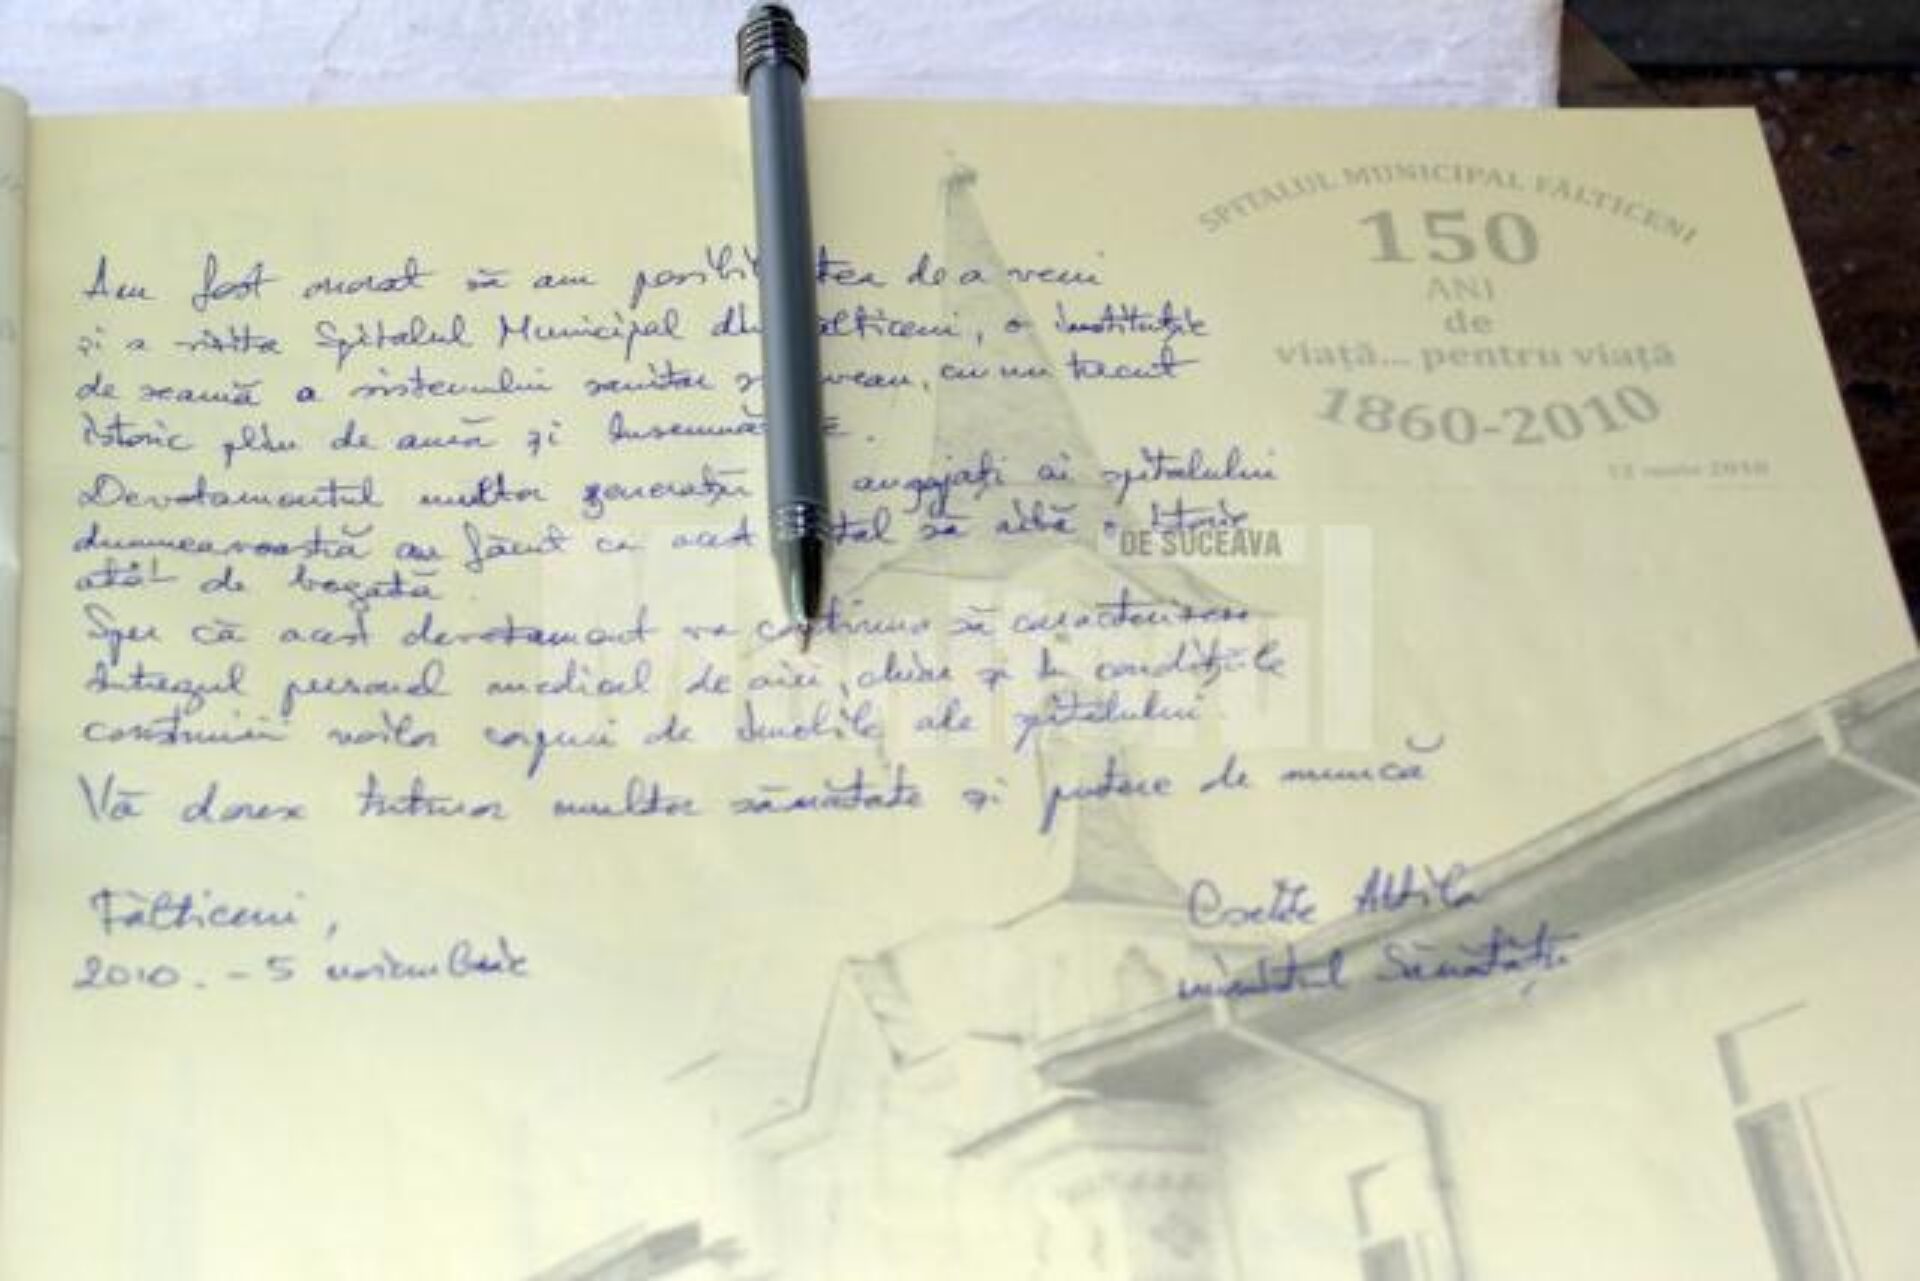 SPITALUL MUNICIPAL FĂLTICENI
150
ANI
de
viață... pentru viață
1860-2010
Am fost onorat să am posibil tea de a veni
și a vizita Spitalul Municipal din ălticeni, o instituție
de seamă a sistemului sanitar , cu un trecut
istoric plin de and și însemnătate.
Devotamentul multor generații angajați ai spitalului
dumneavoastră au făcut ca acest tal să aibă o istorie
DE SUCEAVA
atât de bogată.
Sper că acest devotament va continua să caracterizeze
întregul personal medical de aici, chiar și în condițiile
construirii noilor corpuri de imobile ale spitalului.
Vă doresc tuturor multor sănătate și putere de muncă
Fălticeni,
2010. - 5 noiembrie
Cseke Attila
ministrul Sănătății